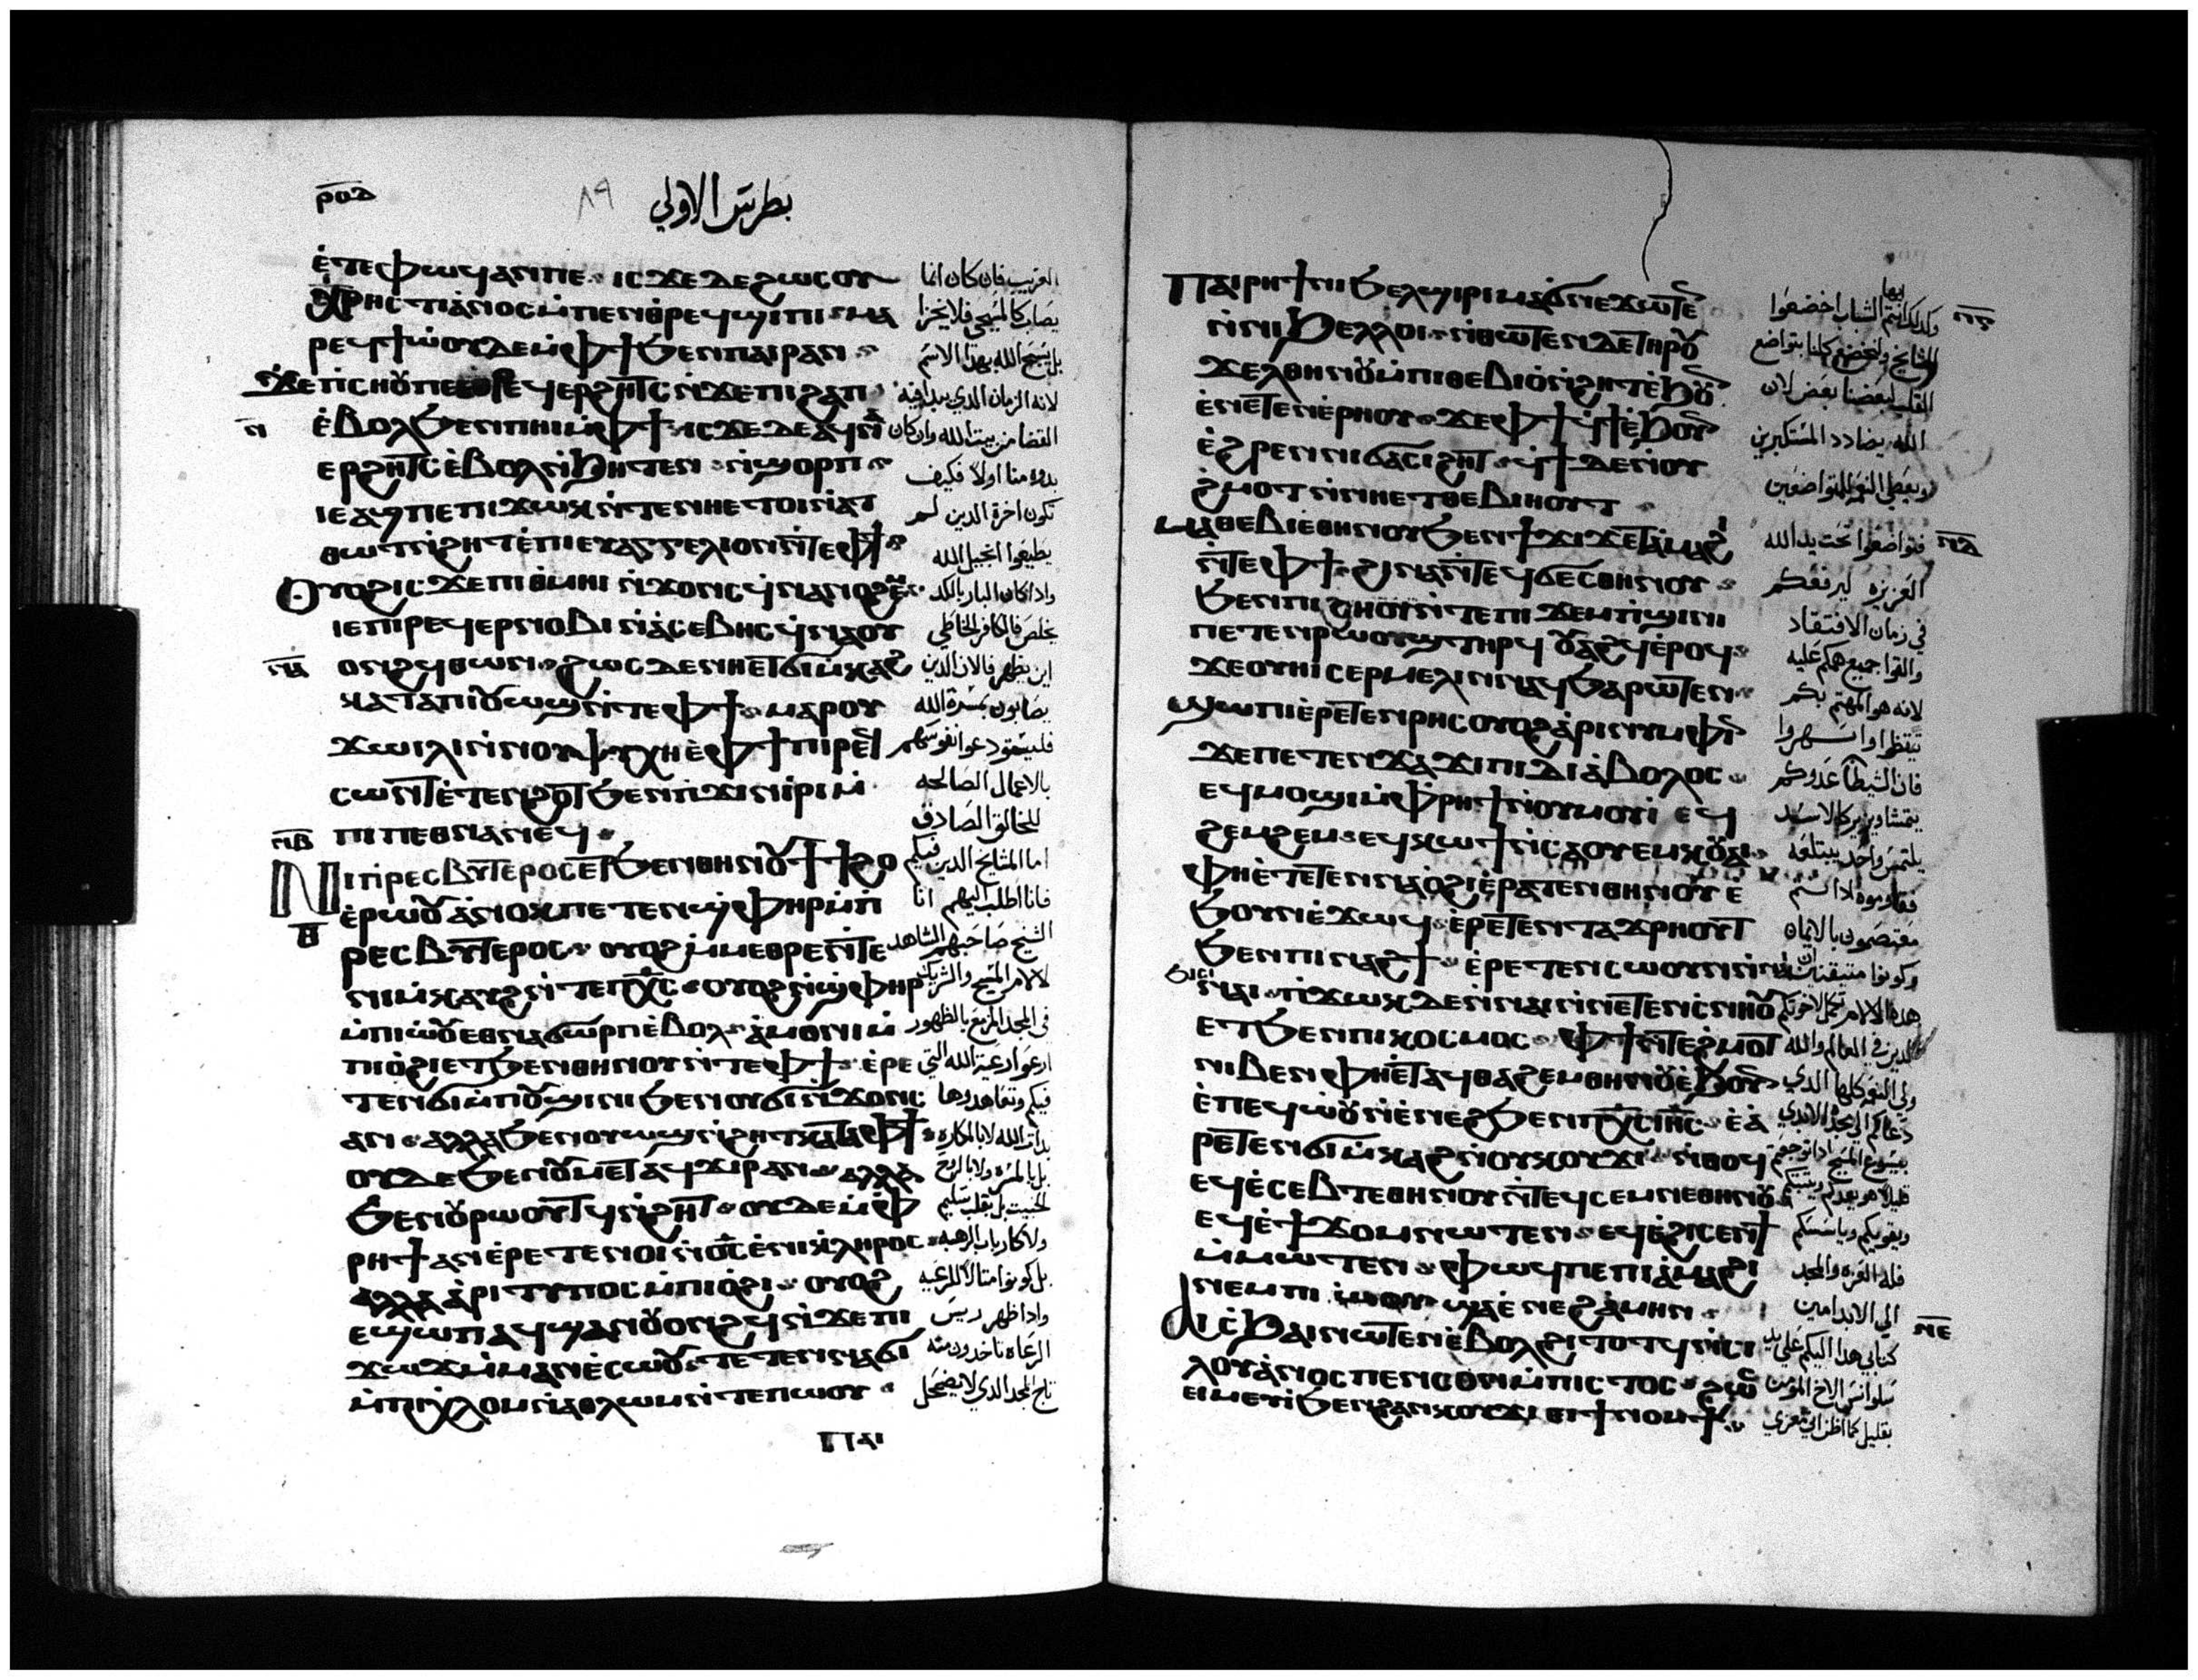 ⲣⲟⲇ
٨٩
بطرس الاولي
ⲉ̀ⲧⲉⲫⲱϥⲁⲛⲡⲉ ⲓⲥϫⲉⲇⲉϩⲱⲥⲟⲩ
ⲭⲣⲏⲥⲧⲓⲁ̀ⲛⲟⲥ ⲙ̀ⲡⲉⲛⲑⲣⲉϥϣⲓⲡⲓ ⲙⲁ
ⲣⲉϥϯⲱ̀ⲟⲩ ⲇⲉ ⲙ̀ⲫϯ ϧⲉⲛⲡⲁⲓⲣⲁⲛ
ϫⲉⲡⲓⲥⲏⲟⲩⲡⲉ ⲉⲣϩⲏⲧⲥ ⲛ̀ϫⲉⲡⲓϩⲁⲡ
ⲛ̅
ⲉ̀ⲃⲟⲗϧⲉⲛⲡⲏⲓⲙ̀ⲫϯ ⲓⲥϫⲉ ⲇⲉ ⲁϥⲛⲁ
ⲉⲣϩⲏⲧⲥ ⲉ̀ⲃⲟⲗⲛ̀ϧⲏⲧⲉⲛ ⲛ̀ϣⲟⲣⲡ
ⲓⲉ ⲁϣⲡⲉ ⲡⲓϫⲱⲕ ⲛ̀ⲧⲉⲛⲏⲉⲧⲟⲓⲛ̀ⲁⲧ
ⲑⲱⲧ ⲛ̀ϩⲏⲧ ⲉ̀ⲡⲓⲉⲩⲁⲅⲅⲉⲗⲓⲟⲛ ⲛ̀ⲧⲉⲫϯ
ⲟⲩⲟϩ ⲓⲥϫⲉ ⲡⲓⲑⲙⲏⲓ ⲛ̀ϫⲟⲛⲥ ϥⲛⲁⲛⲟϩⲉⲙ
ⲓⲉ ⲡⲓⲣⲉϥⲉⲣⲛⲟⲃⲓ ⲛ̀ⲁ̀ⲥⲉⲃⲏⲥ ϥⲛⲁⲟⲩ
ⲛ̅ⲁ̅
ⲟⲛϩϥ ⲑⲱⲛ ϩⲱⲥⲇⲉ ⲛⲏⲉⲧϭⲓⲙ̀ⲕⲁϩ
ⲕⲁⲧⲁⲡⲓⲟⲩⲱϣ ⲛ̀ⲧⲉⲫϯ ⲙⲁⲣⲟⲩ
ϫⲱⲓⲗⲓ ⲛ̀ⲛⲟⲩⲯⲩⲭⲏ ⲉ̀ⲫϯ ⲡⲓⲣⲉϥ
ⲥⲱⲛⲧ ⲉ̀ⲧⲉⲛϩⲟⲧ ϧⲉⲛⲡϫⲓⲛⲓ̀ⲣⲓ ⲙ̀
ⲡⲓⲡⲉⲑⲛⲁⲛⲉϥ
ⲛ̅ⲃ̅
ⲛⲓⲡⲣⲉⲥⲃⲩⲧⲉⲣⲟⲥ ⲉⲧϧⲉⲛⲑⲏⲛⲟⲩ ϯϯϩⲟ
ⲉ̀ⲣⲱⲟⲩ ⲁ̀ⲛⲟⲕ ⲡⲉⲧⲉⲛϣⲫⲏⲣ ⲙ̀ⲡ
ⲑ̅
ⲣⲉⲥⲃⲩⲧⲉⲣⲟⲥ ⲟⲩⲟϩ ⲙ̀ⲙⲉⲑⲣⲉ ⲛ̀ⲧⲉ
ⲛⲓⲙ̀ⲕⲁⲩϩ ⲛ̀ⲧⲉⲡⲭ̅ⲥ̅ ⲟⲩⲟϩ ⲛ̀ϣⲫⲏⲣ
ⲙ̀ⲡⲓⲱ̀ⲟⲩ ⲉⲑⲛⲁϭⲱⲣⲡ ⲉ̀ⲃⲟⲗ ⲁ̀ⲙⲟⲛⲓ ⲙ̀
ⲡⲓⲟ̀ϩⲓ ⲉⲧϧⲉⲛⲑⲏⲛⲟⲩ ⲛ̀ⲧⲉⲫϯ ⲉ̀ⲣⲉ
ⲧⲉⲛϭⲓⲙ̀ⲡⲟⲩϣⲓⲛⲓ ϧⲉⲛⲟⲩϭⲓⲛ̀ϫⲟⲛⲥ
ⲁⲛ ⲁⲗⲗⲁ ϧⲉⲛⲟⲩⲱϣ ⲛ̀ϩⲏⲧ ⲕⲁⲧⲁⲫϯ
ⲟⲩⲇⲉ ϧⲉⲛⲟⲩⲙⲉⲧⲁϥϫⲓⲣ ⲁⲛ ⲁⲗⲗⲁ
ϧⲉⲛⲟⲩⲣⲱⲟⲩⲧϥ ⲛ̀ϩⲏⲧ ⲟⲩⲇⲉ ⲙ̀ⲫ
ⲣⲏϯ ⲁⲛ ⲉ̀ⲣⲉⲧⲉⲛⲟⲓ ⲛ̀ⲟ̅ⲥ̅ ⲉ̀ⲛⲓⲕ̀ⲗⲏⲣⲟⲥ
ⲁⲗⲗⲁ ⲁ̀ⲣⲓⲧⲩⲡⲟⲥ ⲙ̀ⲡⲓⲟ̀ϩⲓ ⲟⲩⲟϩ
ⲉϣⲱⲡ ⲁϥϣⲁⲛⲟⲩⲟⲛϩϥ ⲛ̀ϫⲉⲡⲓ
ϫⲱϫ ⲙ̀ⲙⲁⲛⲉ̀ⲥⲱⲟⲩ ⲧⲉⲧⲉⲛⲛⲁϭⲓ
ⲙ̀ⲡⲓⲭ̀ⲗⲟⲙ ⲛ̀ⲁⲑⲗⲱⲙ ⲛ̀ⲧⲉⲡⲱⲟⲩ
ⲡⲁⲓ
الغريب فان كان انما
يصاب كالمسيحي فلا يخزا
بل يسبح الله بهذا الاسم
لانه الزمان الذي يبدا فيه
القضا من بيت الله وان كان
بدوه منا اولا فكيف
تكون اخرة الدين لم
يطيعوا انجيل الله
واذا كان البار بالكد
يخلص فالكافر الخاطي
اين يظهر فالان الدين
يصابون بمسرة الله
فليستودعوا نفوسهم
بالاعمال الصالحه
للخالق الصادق
اما المشايخ الدين فيكم
فانا اطلب اليهم انا
الشيخ صاحبهم الشاهد
لالام المسيح والشريك
في المجد المزمع بالظهور
ارعوا رعية الله التي
فيكم وتعاهدوها
بل بالمسرة ولا بالربح
الخبيث بل بقلب سليم
بل كونوا مثالا للرعيه
واذا ظهر ريس
الرعاه تاخدون منه
تاج المجد الدي لا يضمحل
ⲡⲁⲓⲣⲏϯ ⲛⲓϧⲉⲗϣⲓⲣⲓ ⲙⲁϭⲛⲉϫⲱⲧⲉⲛ
ⲛ̀ⲛⲓϧⲉⲗⲗⲟⲓ ⲛ̀ⲑⲱⲧⲉⲛ ⲇⲉ ⲧⲏⲣⲟⲩ
ϫⲉⲗⲑⲏⲛⲟⲩ ⲙ̀ⲡⲓⲑⲉⲃⲓⲟ̀ ⲛ̀ϩⲏⲧ ⲉ̀ϧⲟⲩⲛ
ⲉ̀ⲛⲉⲧⲉⲛⲉ̀ⲣⲏⲟⲩ ϫⲉ ⲫϯ ϥϯ ⲉ̀ϧⲟⲩⲛ
ⲉ̀ϩⲣⲉⲛ ⲛⲓϭⲁⲥⲓϩⲏⲧ ϥϯ ⲇⲉ ⲛ̀ⲟⲩ
ϩ̀ⲙⲟⲧ ⲛ̀ⲛⲏⲉⲧⲑⲉⲃⲓⲏⲟⲩⲧ
ⲙⲁⲑⲉⲃⲓⲉⲑⲏⲛⲟⲩ ϧⲉⲛϯϫⲓϫ ⲉⲧⲁ̀ⲙⲁϩⲓ
ⲛ̀ⲧⲉⲫϯ ϩⲓⲛⲁ ⲛ̀ⲧⲉϥϭⲉⲥⲑⲏⲛⲟⲩ
ϧⲉⲛⲡⲓⲥⲏⲟⲩ ⲛ̀ⲧⲉⲡⲓϫⲉⲙⲡ̀ϣⲓⲛⲓ
ⲡⲉⲧⲉⲛⲣⲱⲟⲩϣ ⲧⲏⲣϥ ⲟⲩⲁϩϥ ⲉ̀ⲣⲟϥ
ϫⲉ ⲟⲩⲏⲓ ⲥⲉⲣⲙⲉⲗⲓⲛ ⲛⲁϥ ϧⲁⲣⲱⲧⲉⲛ
ϣⲱⲡⲓ ⲉ̀ⲣⲉⲧⲉⲛⲣⲏⲥ ⲟⲩⲟϩ ⲁ̀ⲣⲓⲛⲩⲙⲫⲓⲛ
ϫⲉ ⲡⲉⲧⲉⲛϫⲁϫⲓ ⲡⲓⲇⲓⲁ̀ⲃⲟⲗⲟⲥ
ⲉϥⲙⲟϣⲓ ⲙ̀ⲫⲣⲏϯ ⲛ̀ⲟⲩⲙⲟⲩⲓ ⲉϥ
ϩⲉⲙϩⲉⲙ ⲉϥⲕⲱϯ ⲛ̀ⲥⲁⲟⲩⲉⲙⲕ
ⲫⲏⲉ̀ⲧⲉⲧⲉⲛⲛⲁⲟ̀ϩⲓ ⲉ̀ⲣⲁⲧⲉⲛⲑⲏⲛⲟⲩ ⲉ̀
ϧⲟⲩⲛ ⲉ̀ϫⲱϥ ⲉ̀ⲣⲉⲧⲉⲛⲧⲁϫⲣⲏⲟⲩⲧ
ϧⲉⲛⲡⲓⲛⲁϩϯ ⲉ̀ⲣⲉⲧⲉⲛⲥⲱⲟⲩⲛ
ⲛⲁⲓ ⲡ̀ϫⲱⲕ ⲇⲉ ⲛ̀ⲛⲁⲓ ⲛ̀ⲛⲉⲧⲉⲛⲥ̀ⲛⲏⲟⲩ
ⲉⲧϧⲉⲛⲡⲓⲕⲟⲥⲙⲟⲥ ⲫϯ ⲛ̀ⲧⲉϩ̀ⲙⲟⲧ
ⲛⲓⲃⲉⲛ ⲫⲏⲉⲧⲁϥⲑⲁϩⲉⲙⲑⲏⲛⲟⲩ ⲉ̀ϧⲟⲩⲛ
ⲉ̀ⲡⲉϥⲱ̀ⲟⲩ ⲛ̀ⲉ̀ⲛⲉϩ ϧⲉⲛⲡⲭ̅ⲥ̅ ⲓⲏ̅ⲥ̅ ⲉ̀ⲁ̀
ⲣⲉⲧⲉⲛϭⲓⲙ̀ⲕⲁϩ ⲛ̀ⲟⲩⲕⲟⲩϫⲓ ⲛ̀ⲑⲟϥ
ⲉϥⲉ̀ⲥⲉⲃⲧⲉⲑⲏⲛⲟⲩ ⲛ̀ⲧⲉϥⲥⲉⲙⲛⲉⲑⲏⲛⲟⲩ
ⲉϥⲉ̀ϯϫⲟⲙ ⲛⲱⲧⲉⲛ ⲉϥⲉ̀ϩⲓⲥⲉⲛϯ
ⲙ̀ⲙⲱⲧⲉⲛ ⲫⲱϥⲡⲉ ⲡⲓⲁ̀ⲙⲁϩⲓ
ⲛⲉⲙⲡⲓⲱ̀ⲟⲩ ϣⲁⲉ̀ⲛⲉϩ ⲁ̀ⲙⲏⲛ
ⲁⲓⲥ̀ϧⲁⲓ ⲛⲱⲧⲉⲛ ⲉ̀ⲃⲟⲗϩⲓⲧⲟⲧϥ ⲛ̀ⲥⲓ
ⲗⲟⲩⲁ̀ⲛⲟⲥ ⲡⲉⲛⲥⲟⲛ ⲙ̀ⲡⲓⲥⲧⲟⲥ ϩⲱⲥ
ⲉⲓⲙⲉⲩⲓ ϧⲉⲛϩⲁⲛⲕⲟⲩϫⲓ ⲉⲓϯⲛⲟⲙϯ
وكدلك انتم ايها الشباب اخضعوا
للمشايخ ولنخضع كلنا بتواضع
القلب لبعضنا بعض لان
الله يضادد المستكبرين
ويعطي النعمه للمتواضعين
ⲛ̅ⲇ̅
فتواضعوا تحت يد الله
العزيزه ليرفعكم
في زمان الافتقاد
والقوا جميع همكم عليه
لانه هو المهتم بكم
تيقظوا واسهروا
فان الشيطان عدوكم
يتمشا ويزير كالاسد
يلتمس واحد يبتلعه
فقاوموه اذ انتم
معتصمون بالايمان
هده الالام تكمل لاخوتكم
الدين في العالم والله
ولي النعم كلها الدي
دعاكم الى مجده الابدي
ويقويكم وياسسكم
فله العزه والمجد
الي الابد امين
ⲛ̅ⲉ̅
كتابي هدا اليكم على يد
سلوانس الاخ المومن
بقليل كما اظن اني معزي